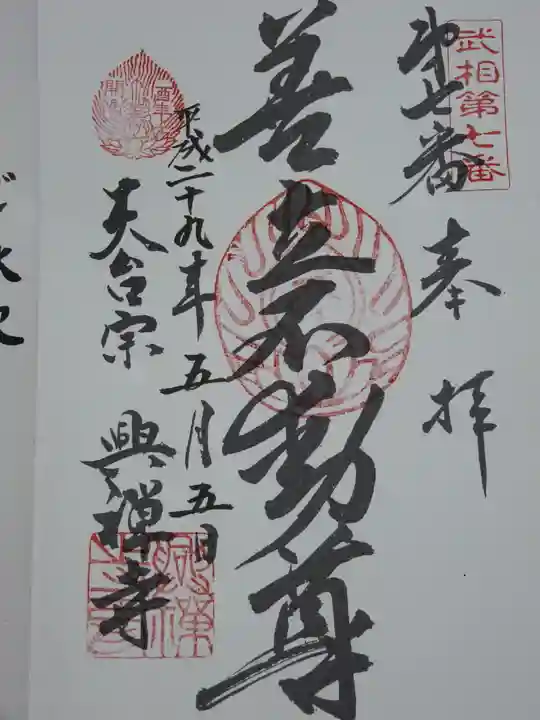 武相第七番
第七番
奉拝
善立不動尊
平成二十九年五月五日
天台宗 興禅寺
酉年
開